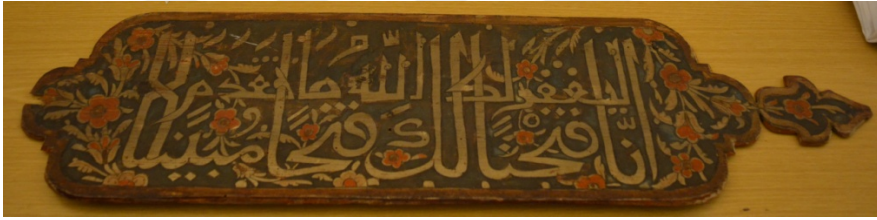 انّا فتحنا لك فتحا مبينا
ليغفر لك الله ما تقدم من